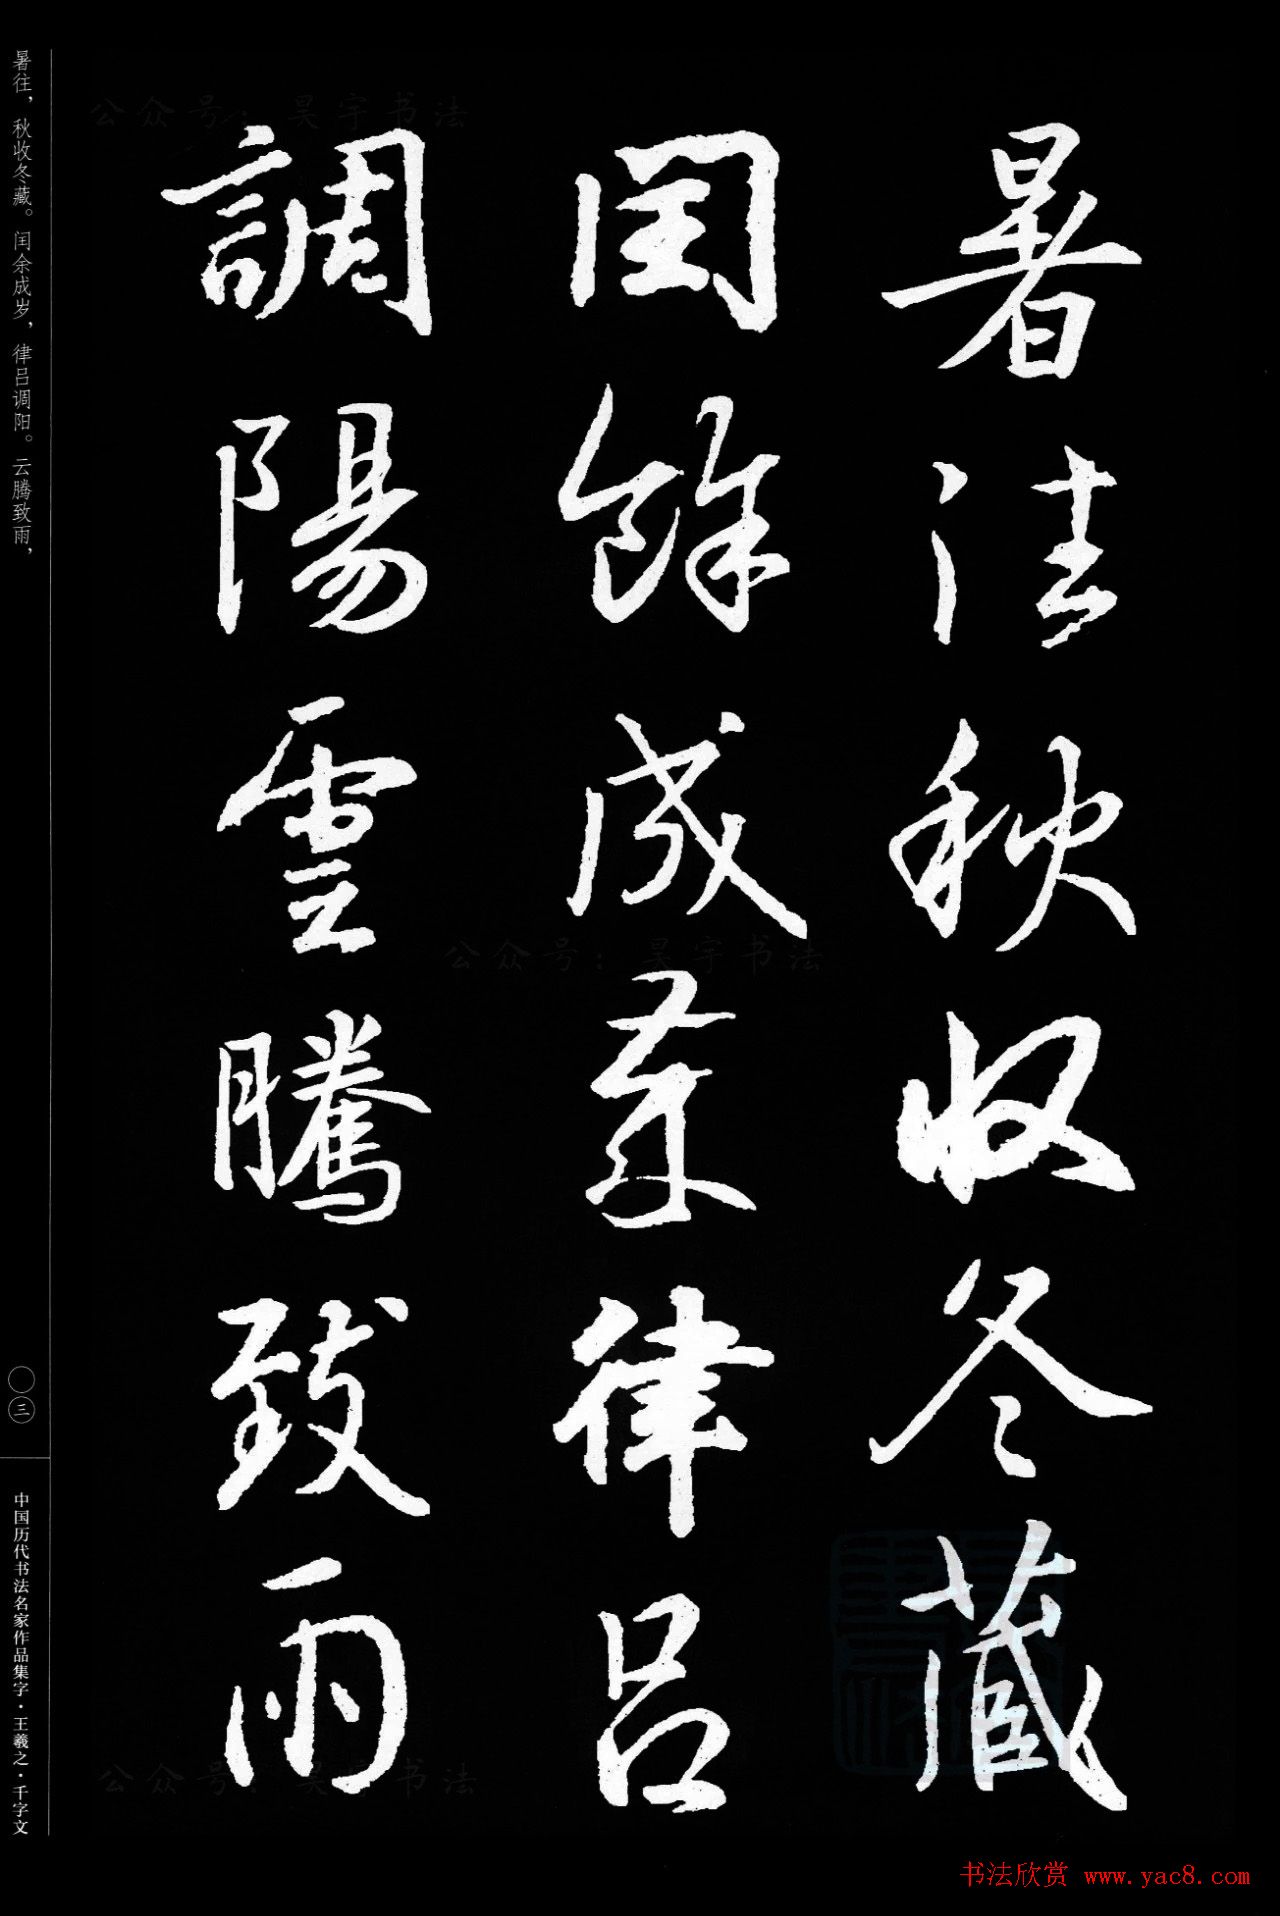 暑往秋收冬藏
闰餘成歲律吕
調陽雲騰致雨
暑往，秋收冬藏。闰余成岁，律吕调阳。云腾致雨，
〇三
中国历代书法名家作品集字·王羲之·千字文
公众号：昊宇书法
公众号：昊宇书法
公众号：昊宇书法
书法欣赏 www.yac8.com